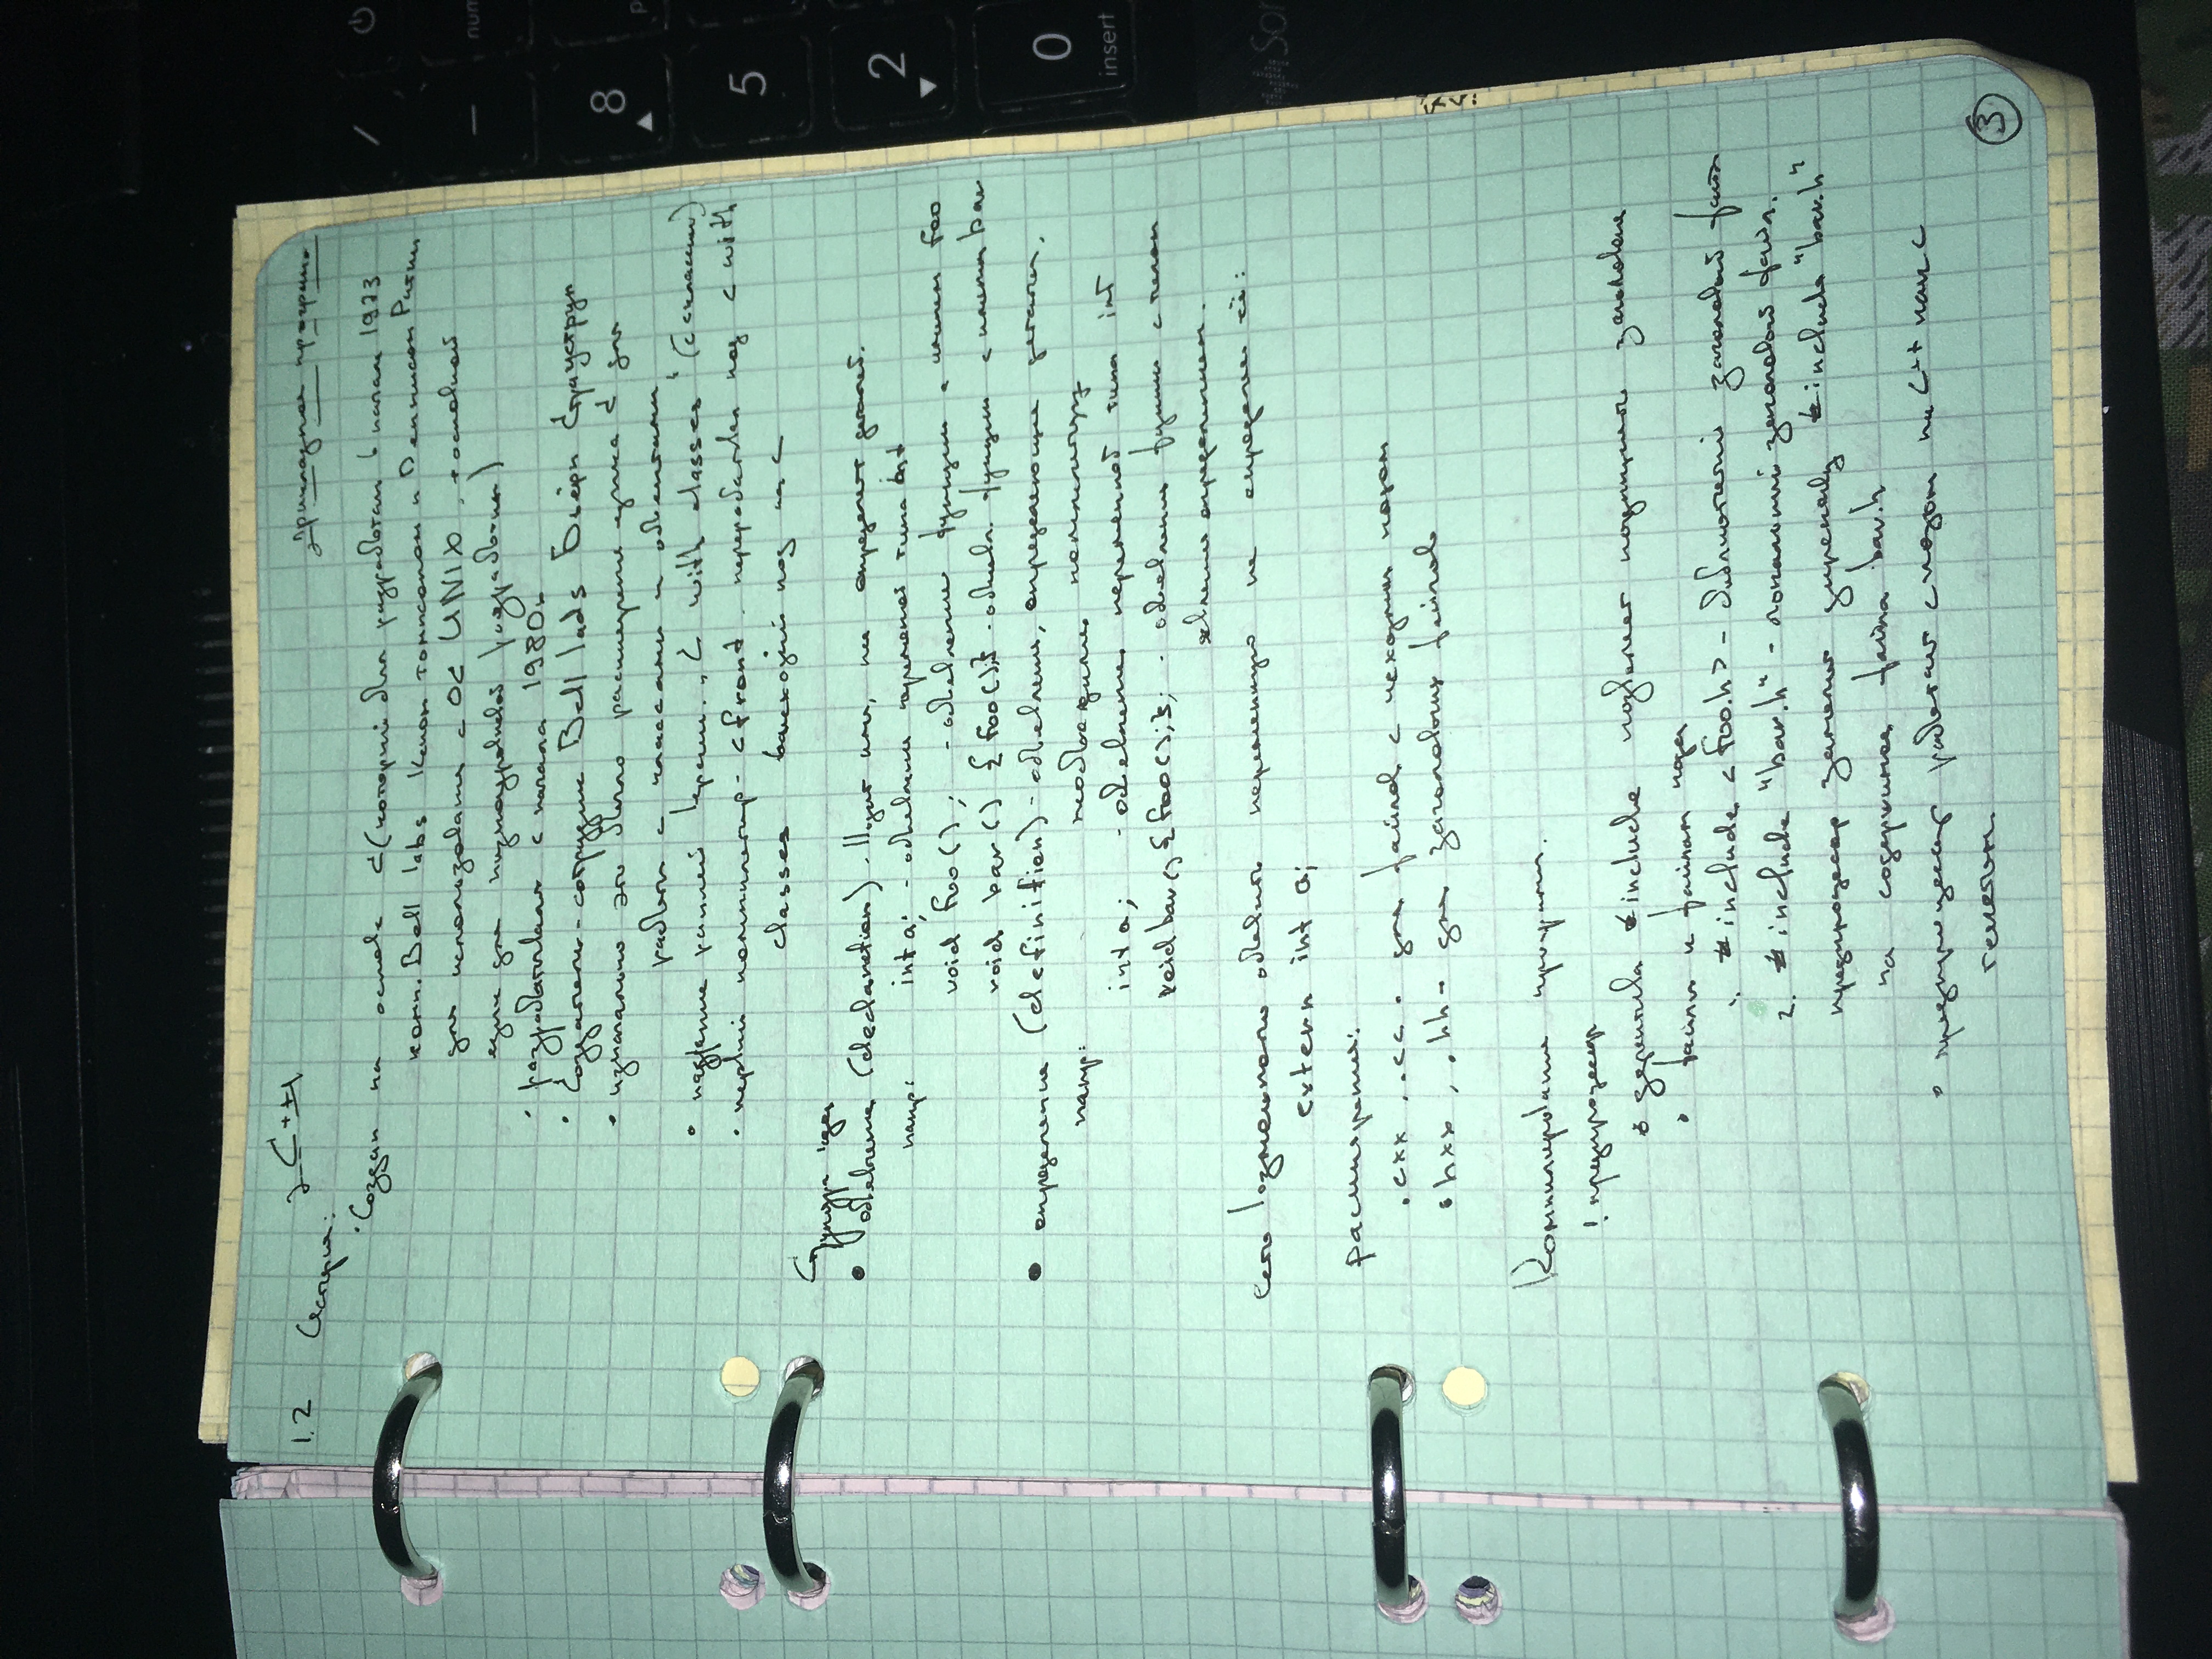 C++
прикладное програм.
1.2 История:
· Создан на основе C (который был разработан в начале 1973
комп. Bell labs Кеном томпсоном и Деннисом Ритчи
для использования с ОС UNIX. + основной
язык для низкоуровневой разработки)
· разрабатывался с начала 1980х
· Создатель - сотрудник Bell labs Бьёрн Страуструп
· изначально это было расширение языка C для
работы с классами и объектами
· название ранней версии „C with classes" (с классами)
· первый компилятор - cfront. перерабатывал код C with
classes в исходный код на C
Структура кода
• объявление (declaration) - имя, не определяет деталей.
напр: int a; - объявление переменной типа int
void foo(); - объявление функции с именем foo
void bar() {foo();} - объявл. функции с именем bar
• определение (definition) - объявление, определяющее детали,
напр: необходимые компилятору
int a; - объявление переменной типа int
void bar() {foo();}; - объявление функции с телом
является определением.
Есть возможность объявить переменную не определяя её:
extern int a;
расширения:
.cxx, .cc - для файлов с исходным кодом
.hxx, .hh - для заголовочных файлов
Компилирование программ.
! предпроцессор
· деректива #include позволяет подключать заголовочные
· файлы к файлам кода
1. #include <foo.h> - библиотечный заголовочный файл
2. #include "bar.h" - локальный заголовочный файл.
предпроцессор заменяет директиву #include "bar.h"
на содержимое файла bar.h
· предпроцессор работает с кодом на C++ как с
текстом.
3
8
5
2
0
insert
num